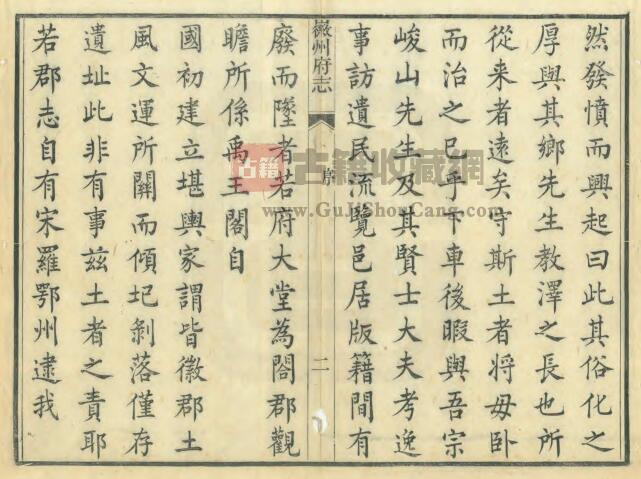 然發憤而興起曰此其俗化之
厚與其鄉先生教澤之長也所
從来者遠矣守斯土者將毋卧
而治之已乎下車後暇與吾宗
峻山先生及其賢士大夫考逸
事訪遺民流覽邑居版籍間有
徽州府志
序
二
廢而墜者若府大堂為閤郡觀
瞻所係禹王閣自
國初建立堪輿家謂皆徽郡土
風文運所關而傾圮剝落僅存
遺址此非有事茲土者之責耶
若郡志自有宋羅鄂州逮我
古籍
古籍收藏網
www.GuJiShouCang.com